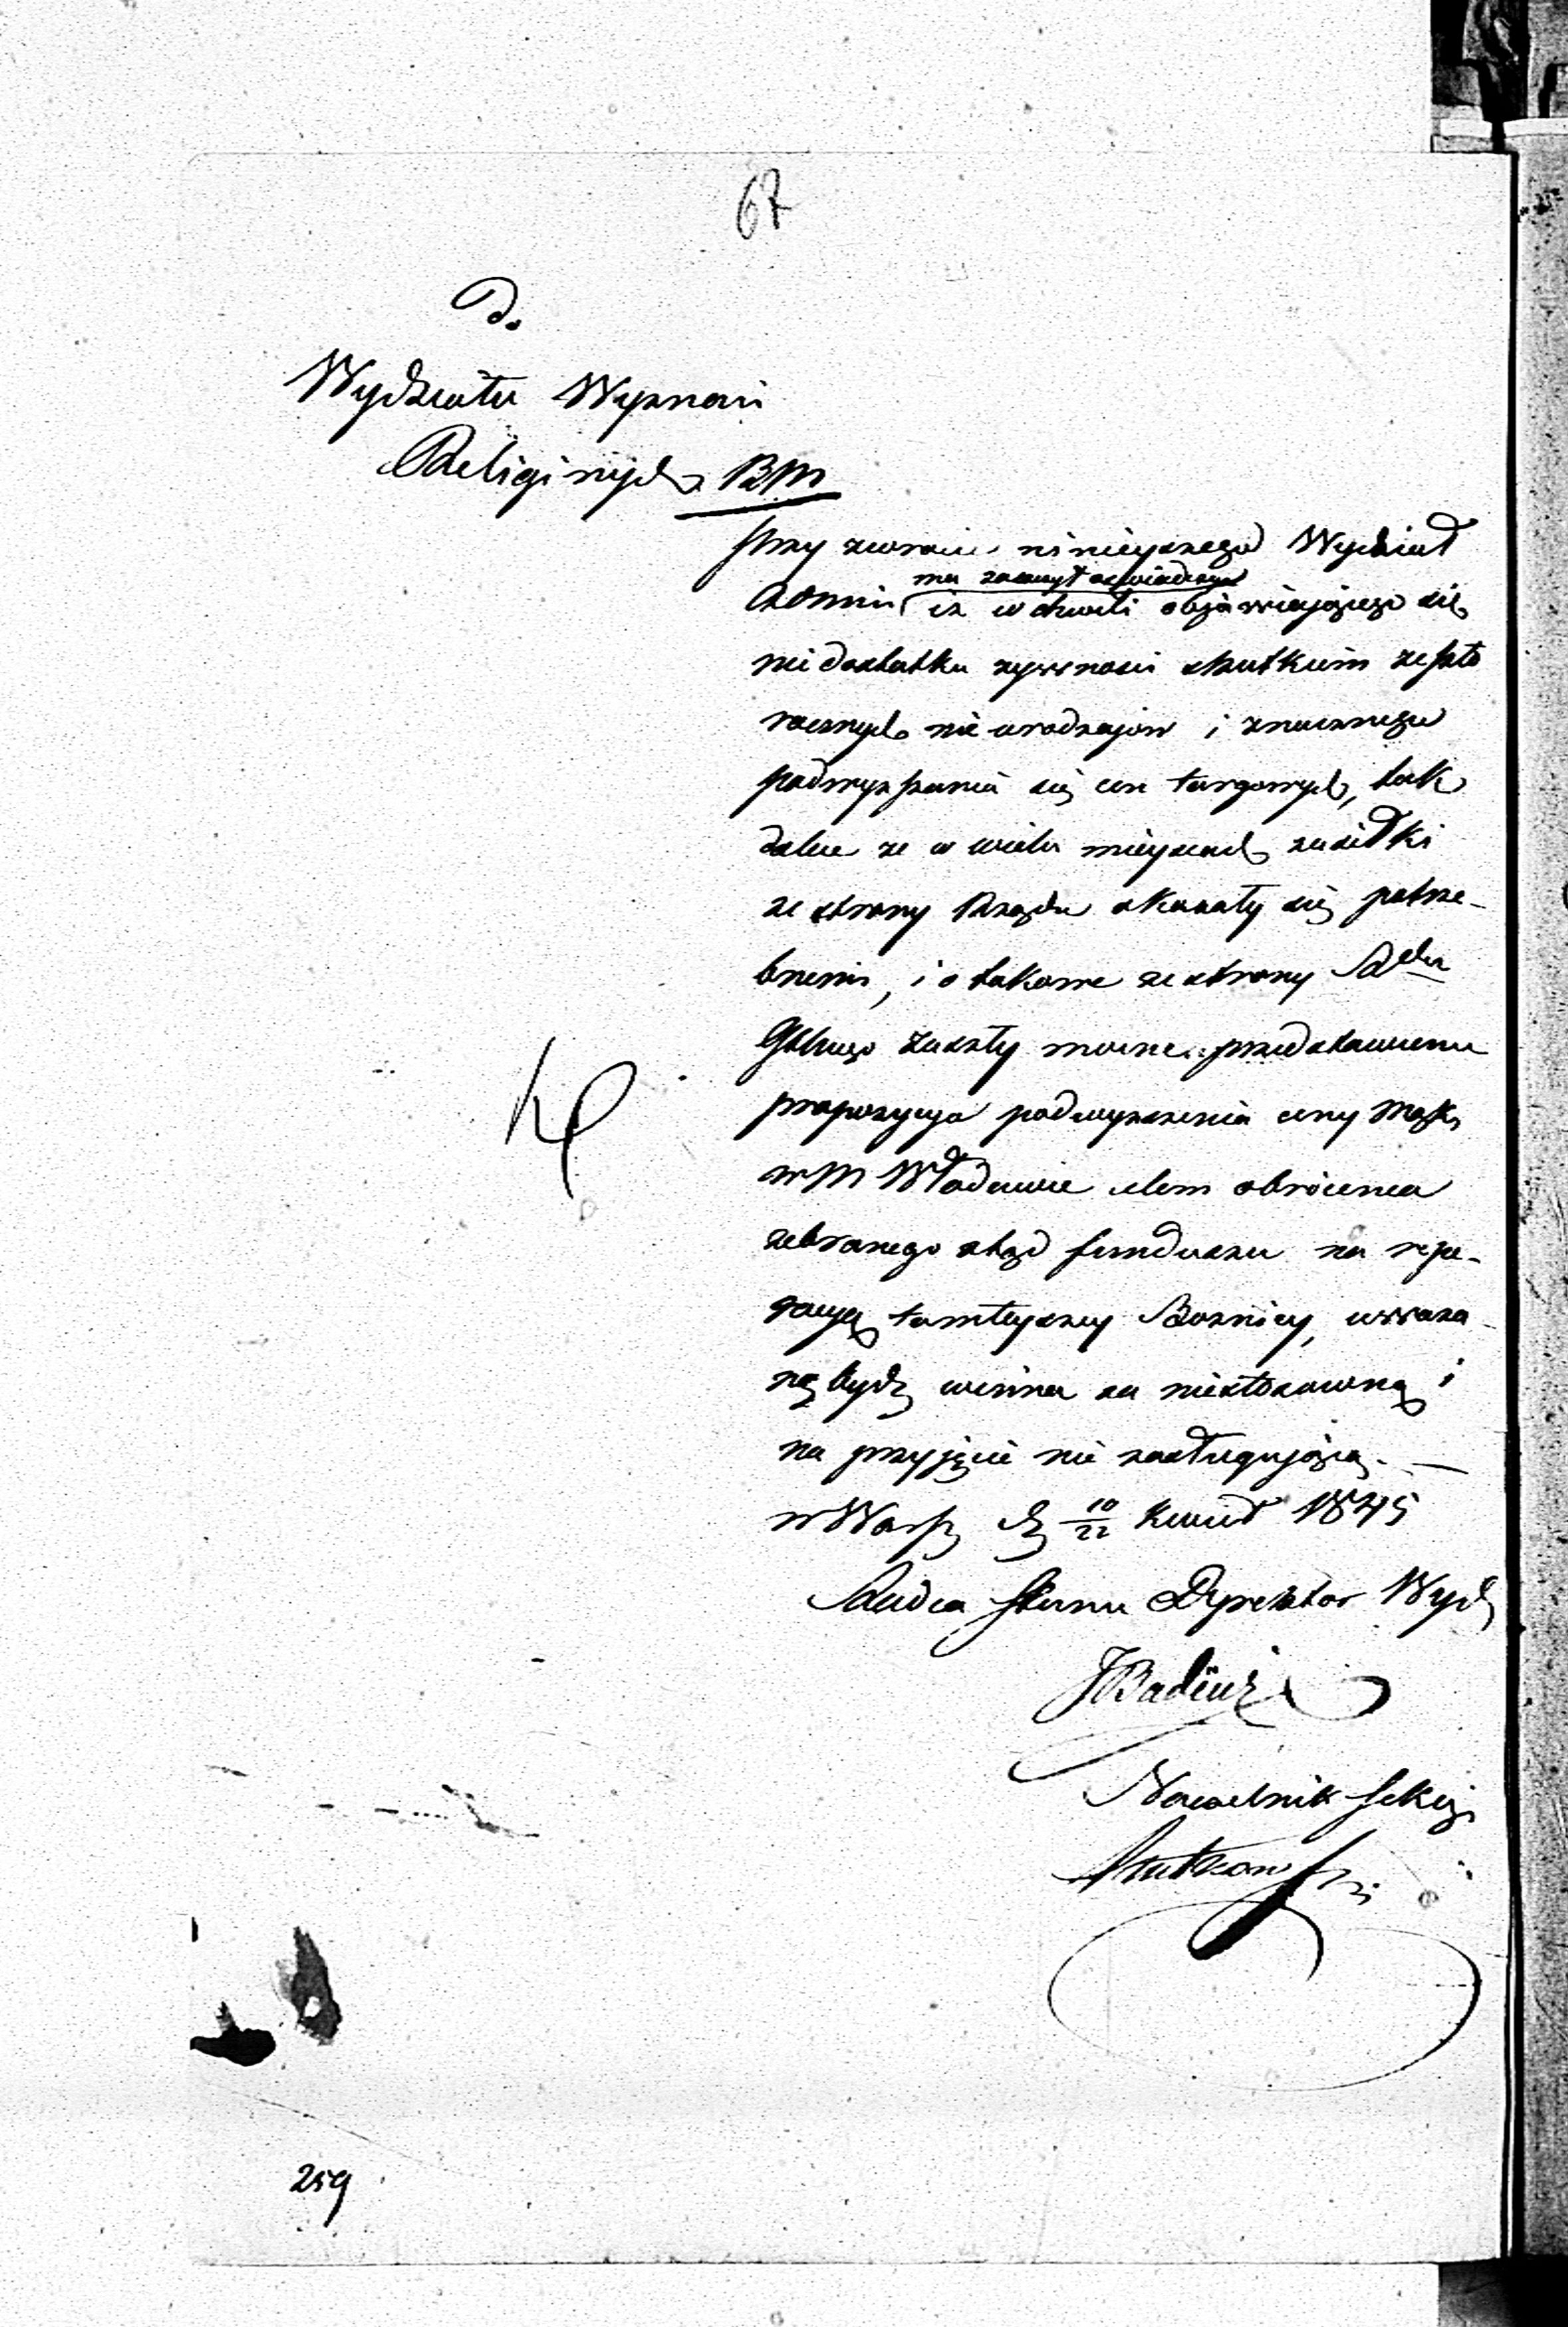 67
Do
Wydziału Wyznań
Religijnych BM
Przy zwrocie niniejszego Wydział
ma zaszczyt oświadczyć
Admin iż w chwili objawiającego się
niedostatku żywności skutkiem zeszło
rocznych nieurodzajów i znacznego
podwyższenia się cen targowych, tak
dalece że w wielu miejscach zasiłki
ze strony Rządu okazały się potrze-
bnemi, i o takowe ze strony
zaszły przedstawienia
propozycya podwyższenia ceny
w M Włodawie celem obrócenia
zebranego stąd funduszu na repe-
racyę tamtejszej Bożnicy, uważa
ną bydź winna za niestosowną i
na przyjęcie nie zasługującą. —
w Warsz d 10/22 Kwiet 1845
Radca Stanu Dyrektor Wydz
Naczelnik Sekcyi
259